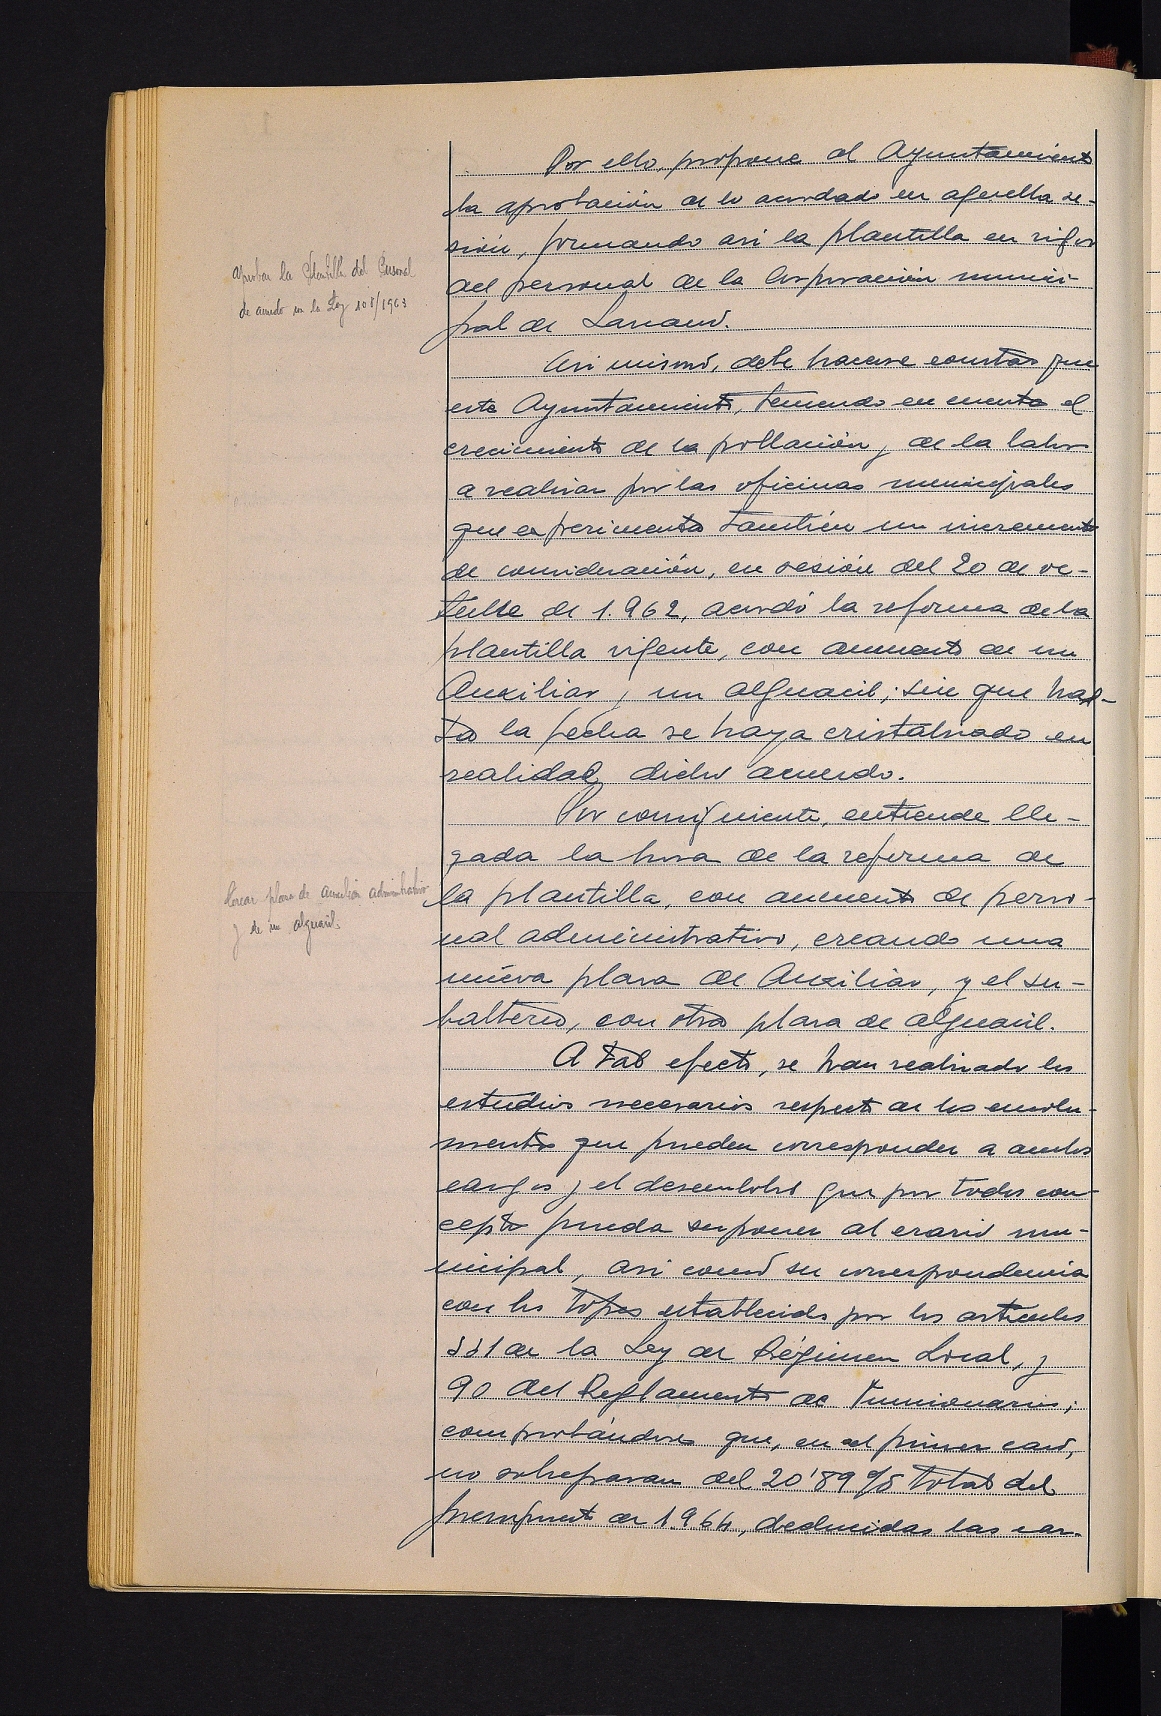 Por ello, propone al Ayuntamiento
la aprobación de lo acordado en aquella se-
sión, formando asi la plantilla en vigor
del personal de la Corporación munici-
pal de
aprobar la Plantilla del Personal
de acuerdo con la Ley 108/1963
Asi mismo, debe hacerse constar que
este Ayuntamiento, teniendo en cuenta el
crecimiento de la población y de la labor
a realizar por las oficinas municipales
que experimenta también un incremento
de consideración, en sesión del 20 de oc-
tubre de 1.962, acordó la reforma de la
plantilla vigente, con aumento de un
Auxiliar y un alguacil; sin que has-
ta la fecha se haya cristalizado en
realidad dicho acuerdo.
Por consiguiente, entiende lle-
gada la hora de la reforma de
la plantilla, con aumento de perso-
nal administrativo, creando una
nueva plaza de Auxiliar, y el su-
balterno, con otra plaza de alguacil.
Crear plaza de auxiliar administrativo
y de un alguacil
A tal efecto, se han realizado los
estudios necesarios respecto de los emolu-
mentos que pueden corresponder a ambos
cargos y el desembolso que por todos con-
cepto pueda suponer al erario mu-
nicipal, asi como su correspondencia
con los topes establecidos por los artículos
331 de la Ley de Régimen Local, y
90 del Reglamento de Funcionarios;
comprobándose que, en el primer caso,
no sobrepasan del 20'89 % total del
presupuesto de 1.964, deducidas las car-